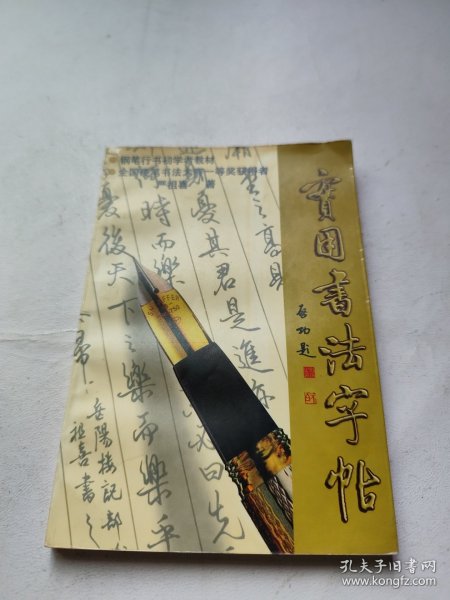 钢笔行书初学者教材
全国硬笔书法大赛一等奖获得者
严祖喜 著
實用書法字帖
启功题
時而樂
憂其君是進亦
必曰先
後天下之樂而樂乎
岳陽樓記部分
祖喜書
孔夫子旧书网
www.kongfz.com